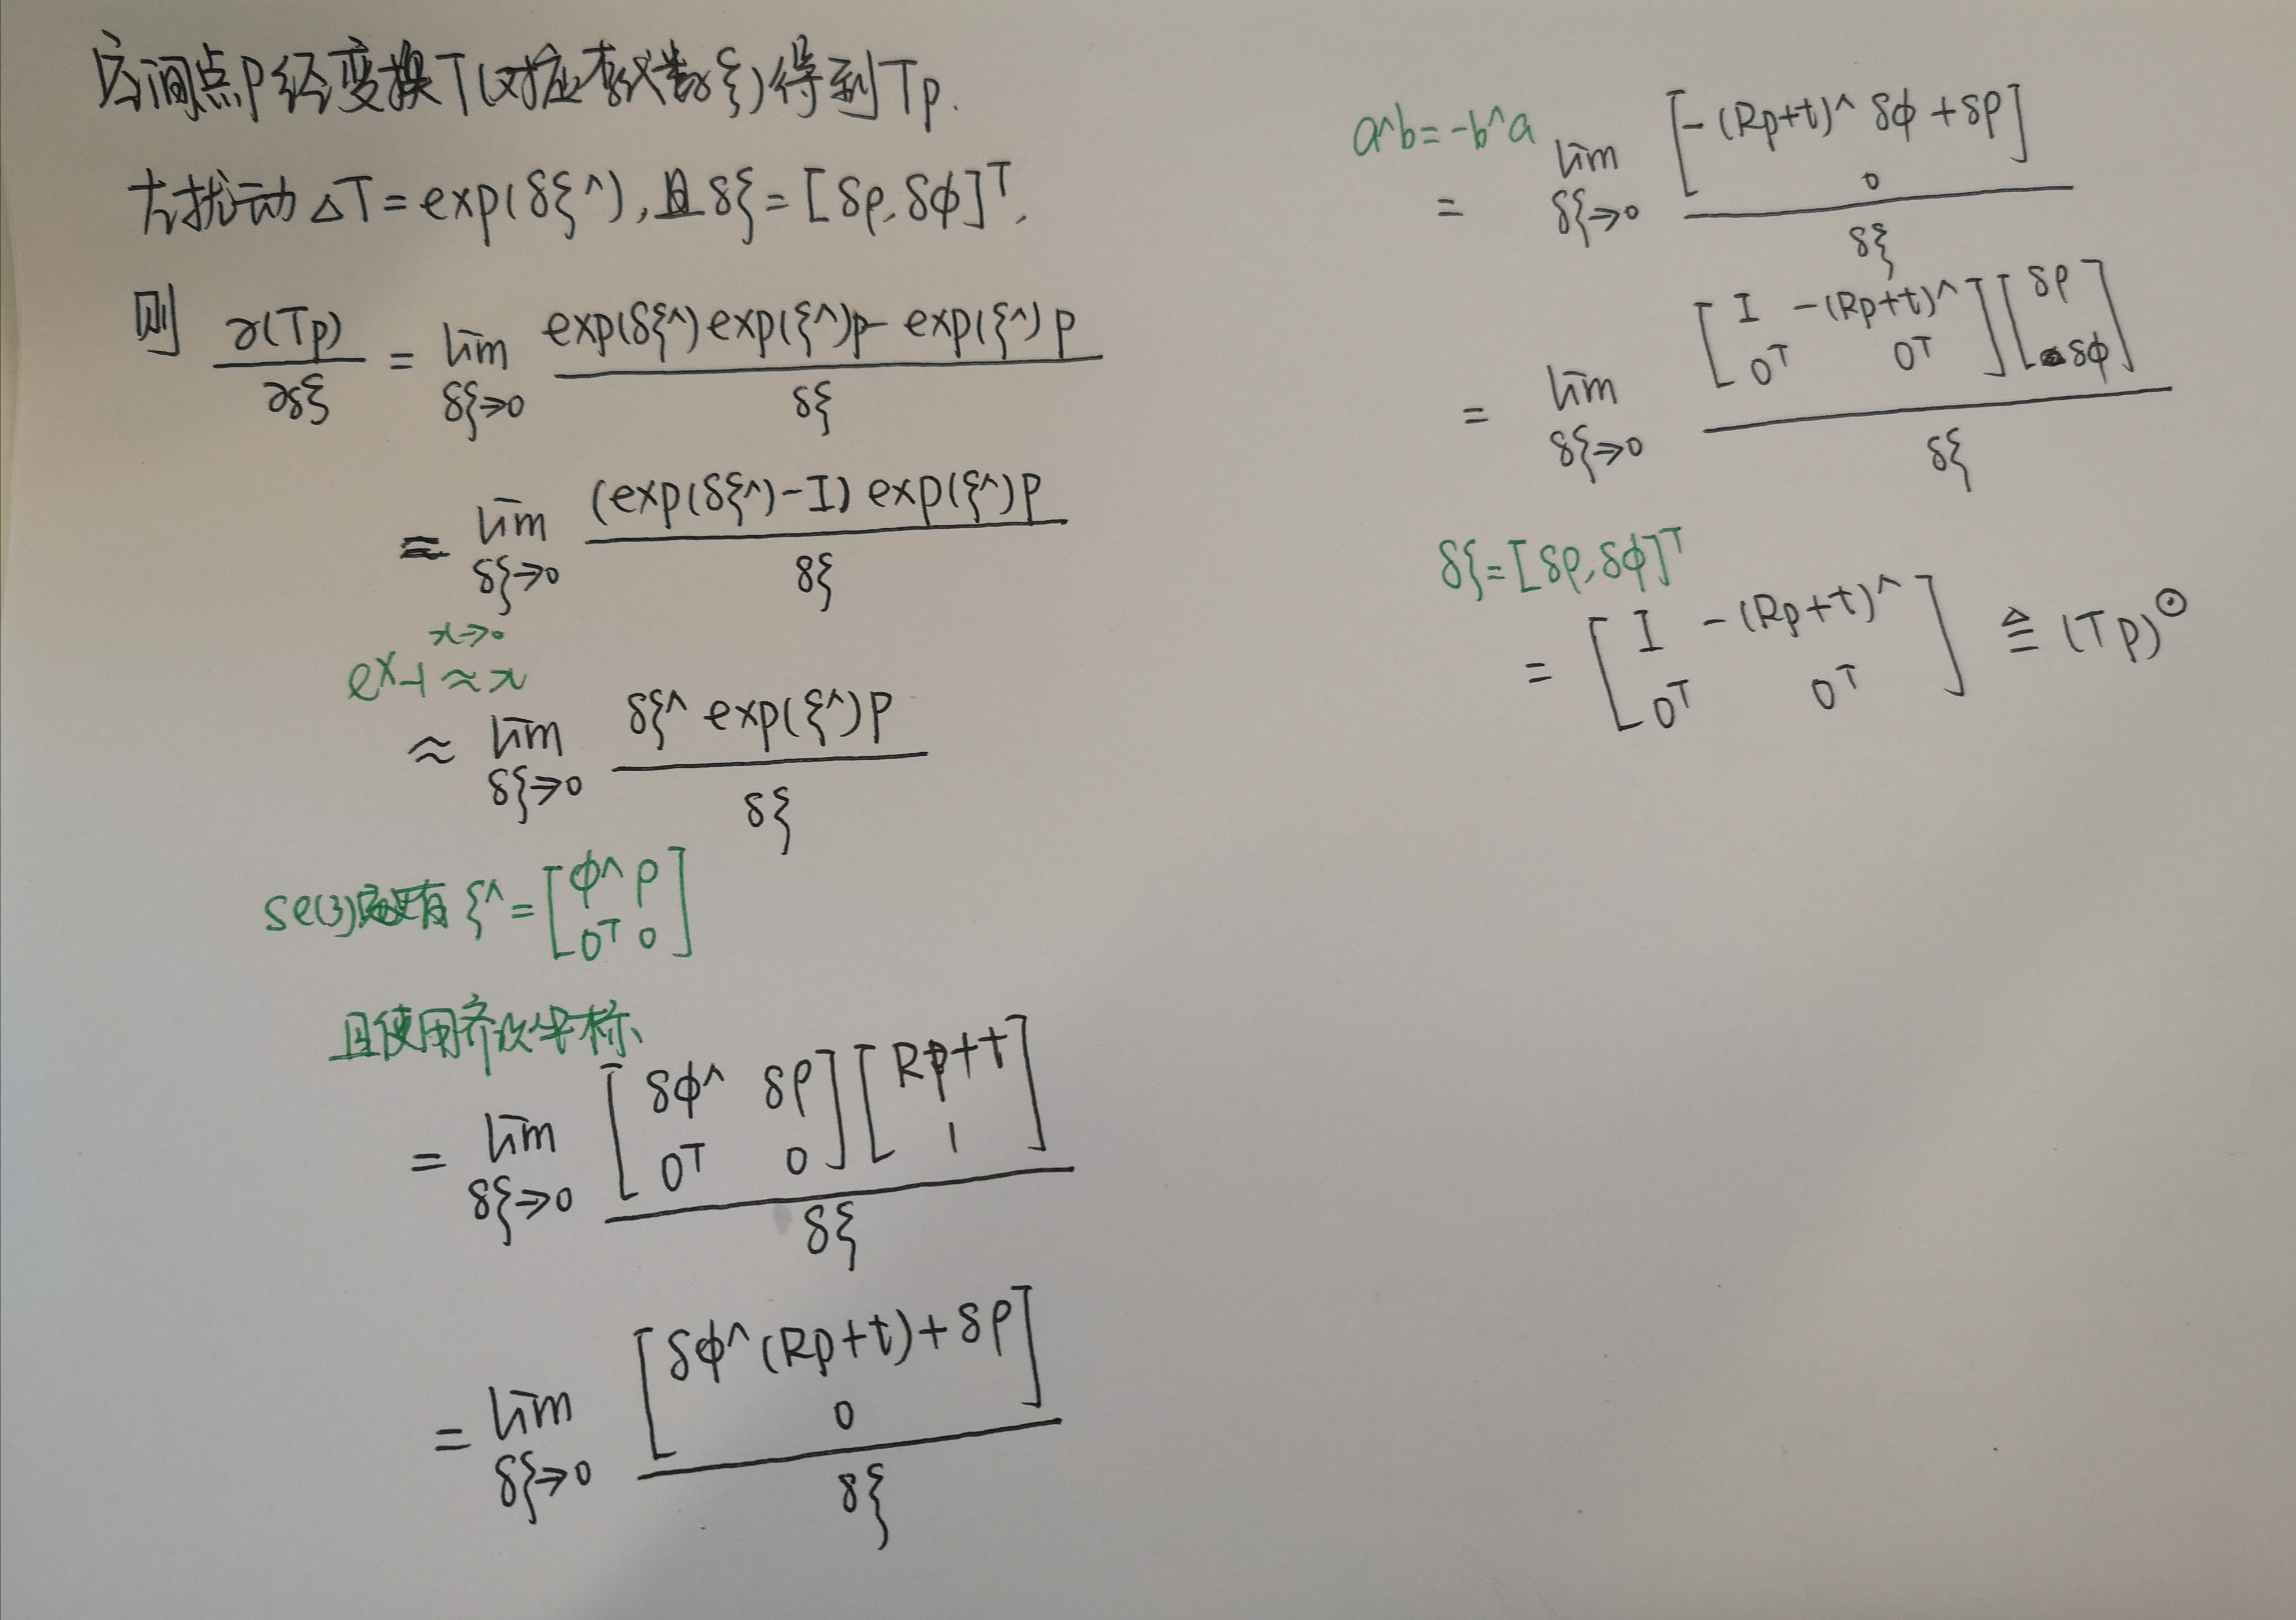 空间点p经变换T(对应李代数ξ)得到Tp.
左扰动 ΔT = exp(δξ^), 且 δξ = [δρ, δφ]ᵀ,
则 ∂(Tp)/∂δξ = lim δξ→0 (exp(δξ^) exp(ξ^)p - exp(ξ^)p) / δξ
= lim δξ→0 ((exp(δξ^) - I) exp(ξ^)p) / δξ
x→0
eˣ-1 ≈ x
≈ lim δξ→0 (δξ^ exp(ξ^)p) / δξ
se(3) ξ^ = [φ^ ρ; 0ᵀ 0]
且使用齐次坐标
= lim δξ→0 ([δφ^ δρ; 0ᵀ 0] [Rp+t; 1]) / δξ
= lim δξ→0 [δφ^(Rp+t)+δρ; 0] / δξ
a^b = -b^a
= lim δξ→0 [-(Rp+t)^ δφ + δρ; 0] / δξ
= lim δξ→0 ([I -(Rp+t)^; 0ᵀ 0ᵀ] [δρ; δφ]) / δξ
δξ = [δρ, δφ]ᵀ
= [I -(Rp+t)^; 0ᵀ 0ᵀ] ≜ (Tp)^⊙